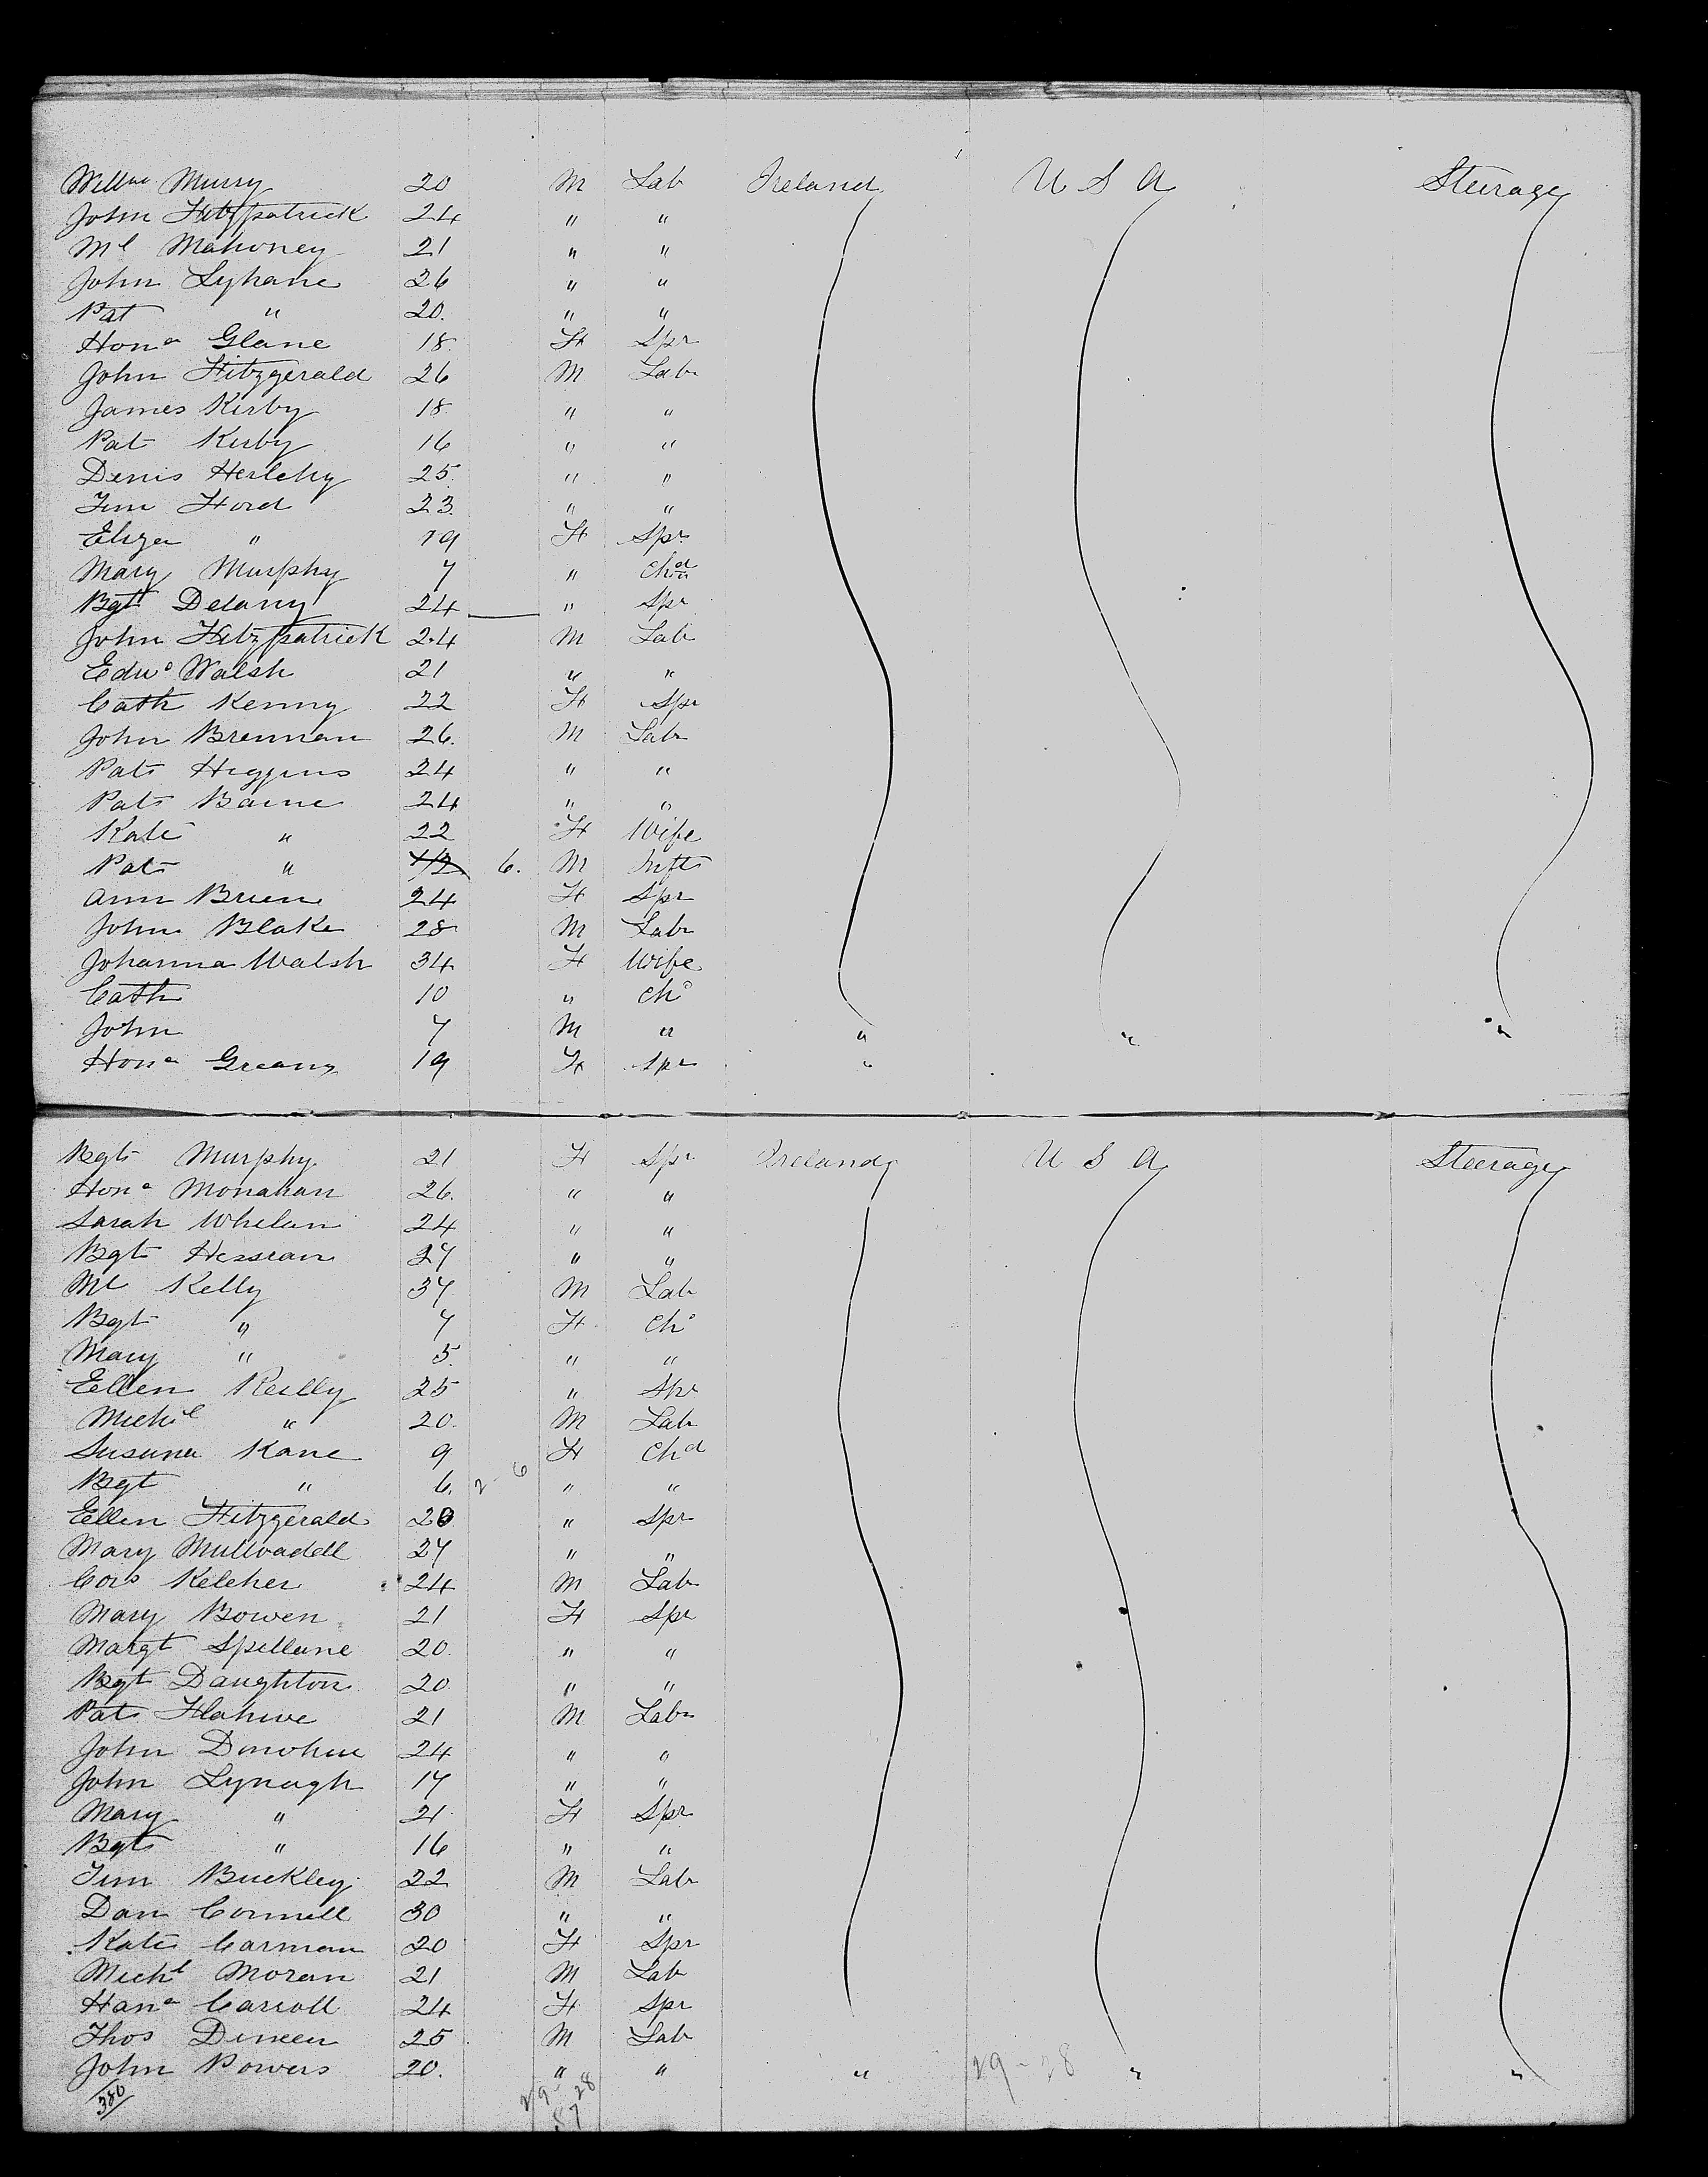 Willm Murry 20 M Lab Ireland U S A Steerage
John Fitzpatrick 24 " "
Ml Mahoney 21 " "
John Lyhane 26 " "
Pat " 20. " "
Hona Glane 18 F Spr
John Fitzgerald 26 M Lab
James Kirby 18 " "
Pat Kirby 16 " "
Denis Herlehy 25. " "
Tim Ford 23 " "
Eliza " 19 F Spr
Mary Murphy 7 " Chd
Bgt Delany 24 " Spr
John Fitzpatrick 24 M Lab
Edwd Walsh 21 " "
Cath Kenny 22 F Spr
John Brennan 26. M Lab
Pat Higgins 24 " "
Pat Baine 24 " "
Kate " 22 F Wife
Pat " 6. M Inft
Ann Brien 24 F Spr
John Blake 28 M Lab
Johanna Walsh 34 F Wife
Cath 10 " Ch
John 7 M " " " "
Hona Greany 19 F Spr "
Bgt Murphy 21 F Spr Ireland U S A Steerage
Hona Monahan 26. " "
Sarah Whelan 24 " "
Bgt Hessian 27 " "
Ml Kelly 37 M Lab
Bgt " 7 F Ch
Mary " 5. " "
Ellen Reilly 25 " Spr
Michl " 20. M Lab
Susana Kane 9 F Chd
Bgt " 6. 2 - 6 " "
Ellen Fitzgerald 20 " Spr
Mary Mullvadell 27 " "
Cors Keleher 24 M Lab
Mary Bowen 21 F Spr
Margt Spillane 20. " "
Bgt Daughton 20 " "
Pat Flahive 21 M Lab
John Donohue 24 " "
John Lynagh 17 " "
Mary " 21 F Spr
Bgt " 16 " "
Tim Buckley 22 M Lab
Dan Connell 30 " "
Kate Carman 20 F Spr
Michl Moran 21 M Lab
Hana Carroll 24 F Spr
Thos Dineen 25 M Lab
John Powers 20. " " " 29-28 " "
380 29- 28
57